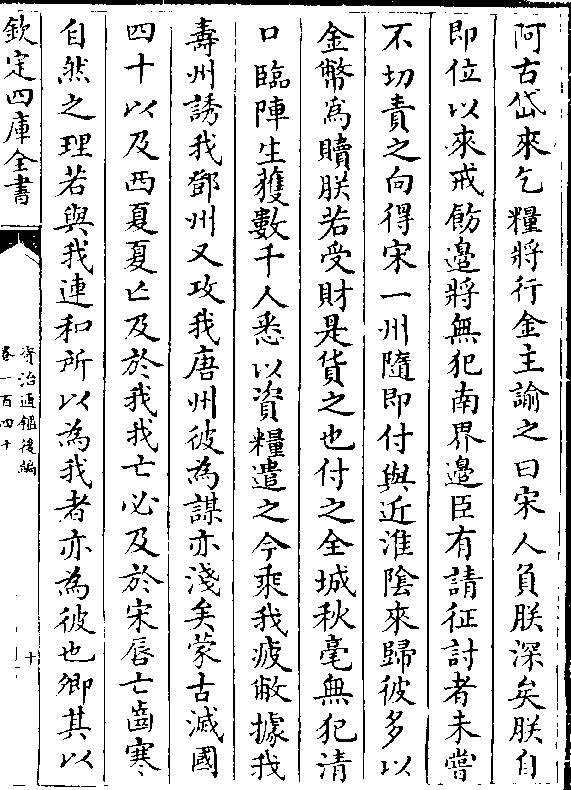 阿古岱來乞糧將行金主諭之曰宋人負朕深矣朕自
即位以來戒飭邊將無犯南界邊臣有請征討者未嘗
不切責之向得宋一州隨即付與近淮陰來歸彼多以
金幣為贖朕若受財是貨之也付之全城秋毫無犯清
口臨陣生獲數千人悉以資糧遣之今乘我疲敝據我
壽州誘我鄧州又攻我唐州彼為謀亦淺矣蒙古滅國
四十以及西夏夏亡及於我我亡必及於宋唇亡齒寒
自然之理若與我連和所以為我者亦為彼也卿其以
欽定四庫全書
資治通鑑後編
卷一百四十
十